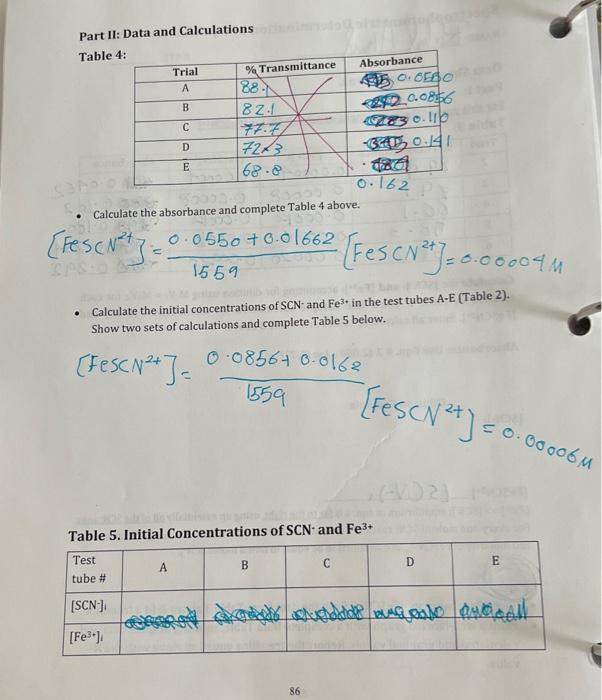 Part II: Data and Calculations
Table 4:
Trial % Transmittance Absorbance
A 88.1 0.0550
B 82.1 0.0856
C 77.7 0.110
D 72.3 0.141
E 68.8
0.162
• Calculate the absorbance and complete Table 4 above.
[FeSCN²⁺] = 0.0550 + 0.01662 [FeSCN²⁺] = 0.00004 M
1559
• Calculate the initial concentrations of SCN- and Fe³⁺ in the test tubes A-E (Table 2).
Show two sets of calculations and complete Table 5 below.
[FeSCN²⁺] = 0.0856 + 0.0162
1559
[FeSCN²⁺] = 0.00006 M
Table 5. Initial Concentrations of SCN- and Fe³⁺
Test tube # A B C D E
[SCN-]i
[Fe³⁺]i
86